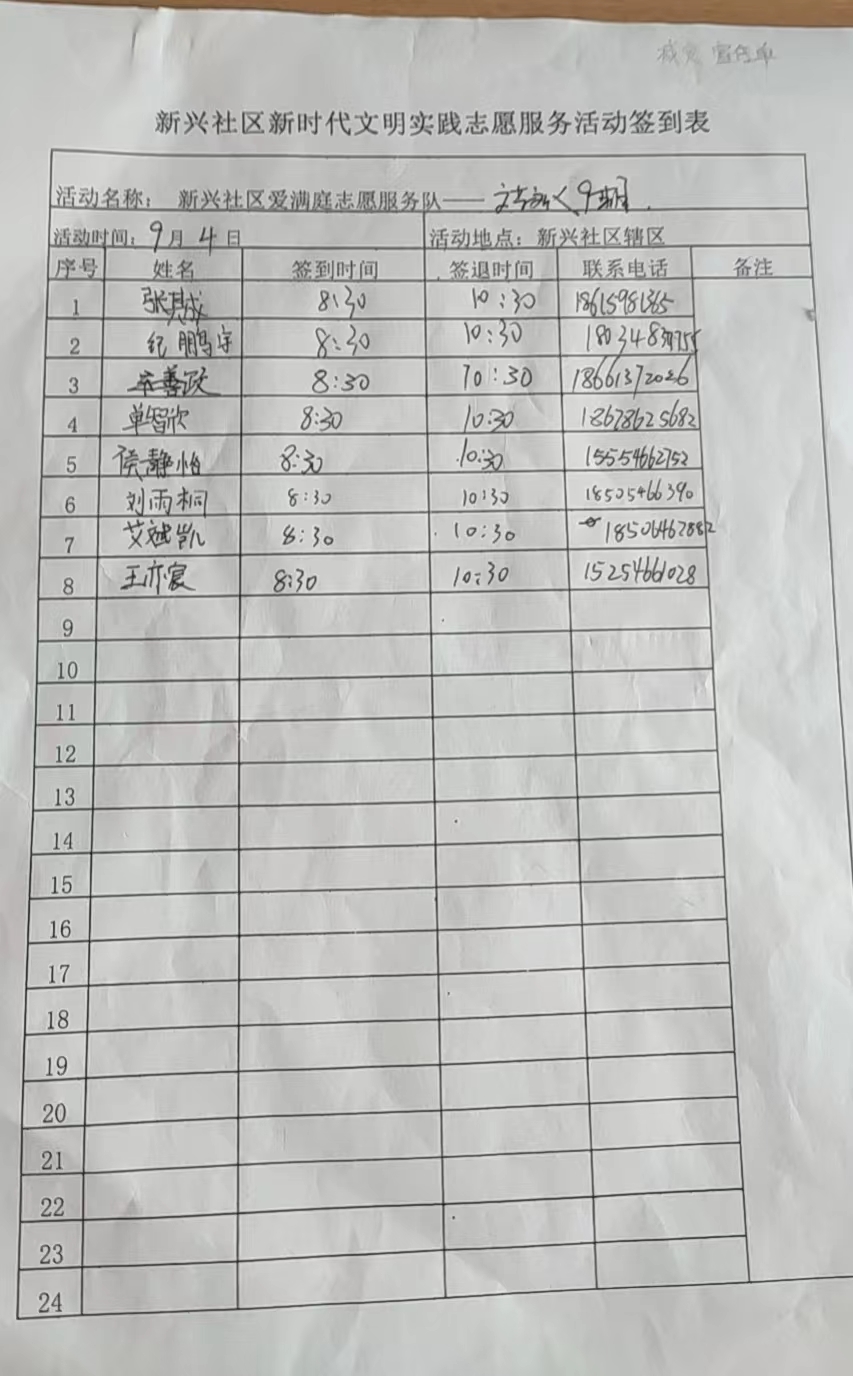 宣传单
新兴社区新时代文明实践志愿服务活动签到表
活动名称： 新兴社区爱满庭志愿服务队—— 9期
活动时间：9月4日 活动地点：新兴社区辖区
序号 姓名 签到时间 签退时间 联系电话 备注
1 张其成 8:30 10:30
2 纪鹏宇 8:30 10:30
3 8:30 10:30 18661372026
4 单智欣 8:30 10:30 18678625682
5 侯静怡 8:30 10:30 15554662752
6 刘雨桐 8:30 10:30 18505466390
7 艾斌凯 8:30 10:30 18506462882
8 王亦宸 8:30 10:30 15254661028
9
10
11
12
13
14
15
16
17
18
19
20
21
22
23
24